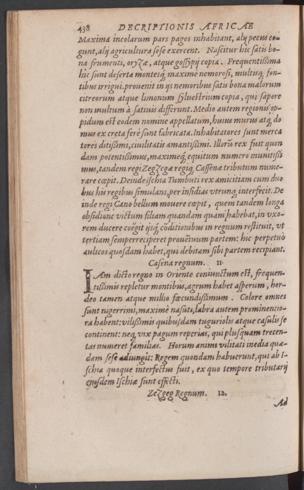 438 DECRIPTIONIS AFRICAE
Maxima incolarum pars pagos inhabitant, alij pecus co-
gunt, alij agricultura sese exercent. Nascitur hic satis bo-
na frumenti, oryzæ, atque gossypij copia. Frequentissima
hic sunt deserta montesq́; maxime nemorosi, multisq́; fon-
tibus irrigui. proueniunt in ijs nemoribus satis bona malorum
citreorum atque limonum syluestrium copia, qui sapore
non multum à satiuis differunt. Medio autem regionis op-
pidum est eodem nomine appellatum, huius murus atq́; do-
mus ex creta ferè sunt fabricata. Inhabitatores sunt merca
tores ditißimi, ciuilitatis amantißimi. Illorũ rex fuit quon
dam potentissimus, maximoq́; equitum numero munitißi
mus, tandem regi Zegzegæ regiq́; Cassena tributum nume-
rare cœpit. Deinde Ischia Tombuti rex amicitiam cum duo
bus his regibus simulans, per insidias vtrunq́; interfecit. De
inde regi Cano bellum mouere cœpit, quem tandem longa
obsidione victum filiam quandam quam habebat, in vxo-
rem ducere coëgit ijsq́; cõditionibus in regnum restituit, vt
tertiam semper reciperet prouentuum partem: hic perpetuò
aulicos quosdam habet, qui debitam sibi partem recipiant.
Casena regnum. 11.
IAm dicto regno in Oriente coniunctum est, frequen-
tissimis repletur montibus, agrum habet asperum, hor-
deo tamen atque millio fœcundißimum. Colore omnes
sunt nigerrimi, maxime nasuti, labra autem prominentio-
ra habent: vilißimis quibusdam tuguriolis atque casulis se
continent: neq́; vnx pagum reperias, qui plusquam trecen-
tas numeret familias. Horum animi vilitati inedia quæ-
dam sese adiungit: Regem quondam habuerunt, qui ab I-
schia quoque interfectus fuit, ex quo tempore tributarij
eiusdem Ischiæ sunt effecti.
Zegzeg Regnum. 12.
Ad